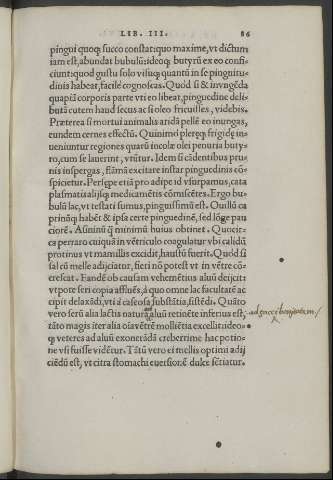 LIB. III. 86
pingui quoq; succo constat: quo maxime, vt dictum
iam est, abundat bubulū: ideoq; butyrū ex eo confi-
ciunt: quod gustu solo visuq; quantū in se pinguitu-
dinis habeat, facile cognoscas. Quod si & inungēda
quapiā corporis parte vti eo libeat, pinguedine deli-
butā cutem haud secus ac si oleo fricuisses, videbis.
Præterea si mortui animalis aridā pellē eo inungas,
eundem cernes effectū. Quinimo pleręq; frigidę in-
ueniuntur regiones quarū incolæ olei penuria buty-
ro, cum se lauerint, vtūtur. Idem si cādentibus pru-
nis inspergas, flāmā excitare instar pinguedinis cō-
spicietur. Persępe etiā pro adipe id vsurpamus, cata
plasmati alijsq; medicamētis cōmiscētes. Ergo bu-
bulū lac, vt testati sumus, pinguissimū est. Ouillū ca
prinūq; habēt & ipsa certe pinguedinē, sed lōge pau
ciorē. Asininū q̄ minimū huius obtinet. Quocir-
ca perraro cuiquā in vētriculo coagulatur vbi calidū
protinus vt mamillis excidit, haustū fuerit. Quod si
sal cū melle adijciatur, fieri nō potest vt in vētre cō-
crescat. Eandē ob causam vehemētius aluū deijcit:
vt pote seri copia affluēs, à quo omne lac facultatē ac
cipit delaxādi, vti à caseosa substātia, sistēdi. Quāto
vero serū alia lactis natura aluū retinēte inferius est,
tāto magis iter alia oīa vētrē molliētia excellit: ideo-
q; veteres ad aluū exonerādā creberrime hac potio-
ne vsi fuisse vidētur. Tātū vero ei mellis optimi adij
ciēdū est, vt citra stomachi euersionē dulce sētiatur.